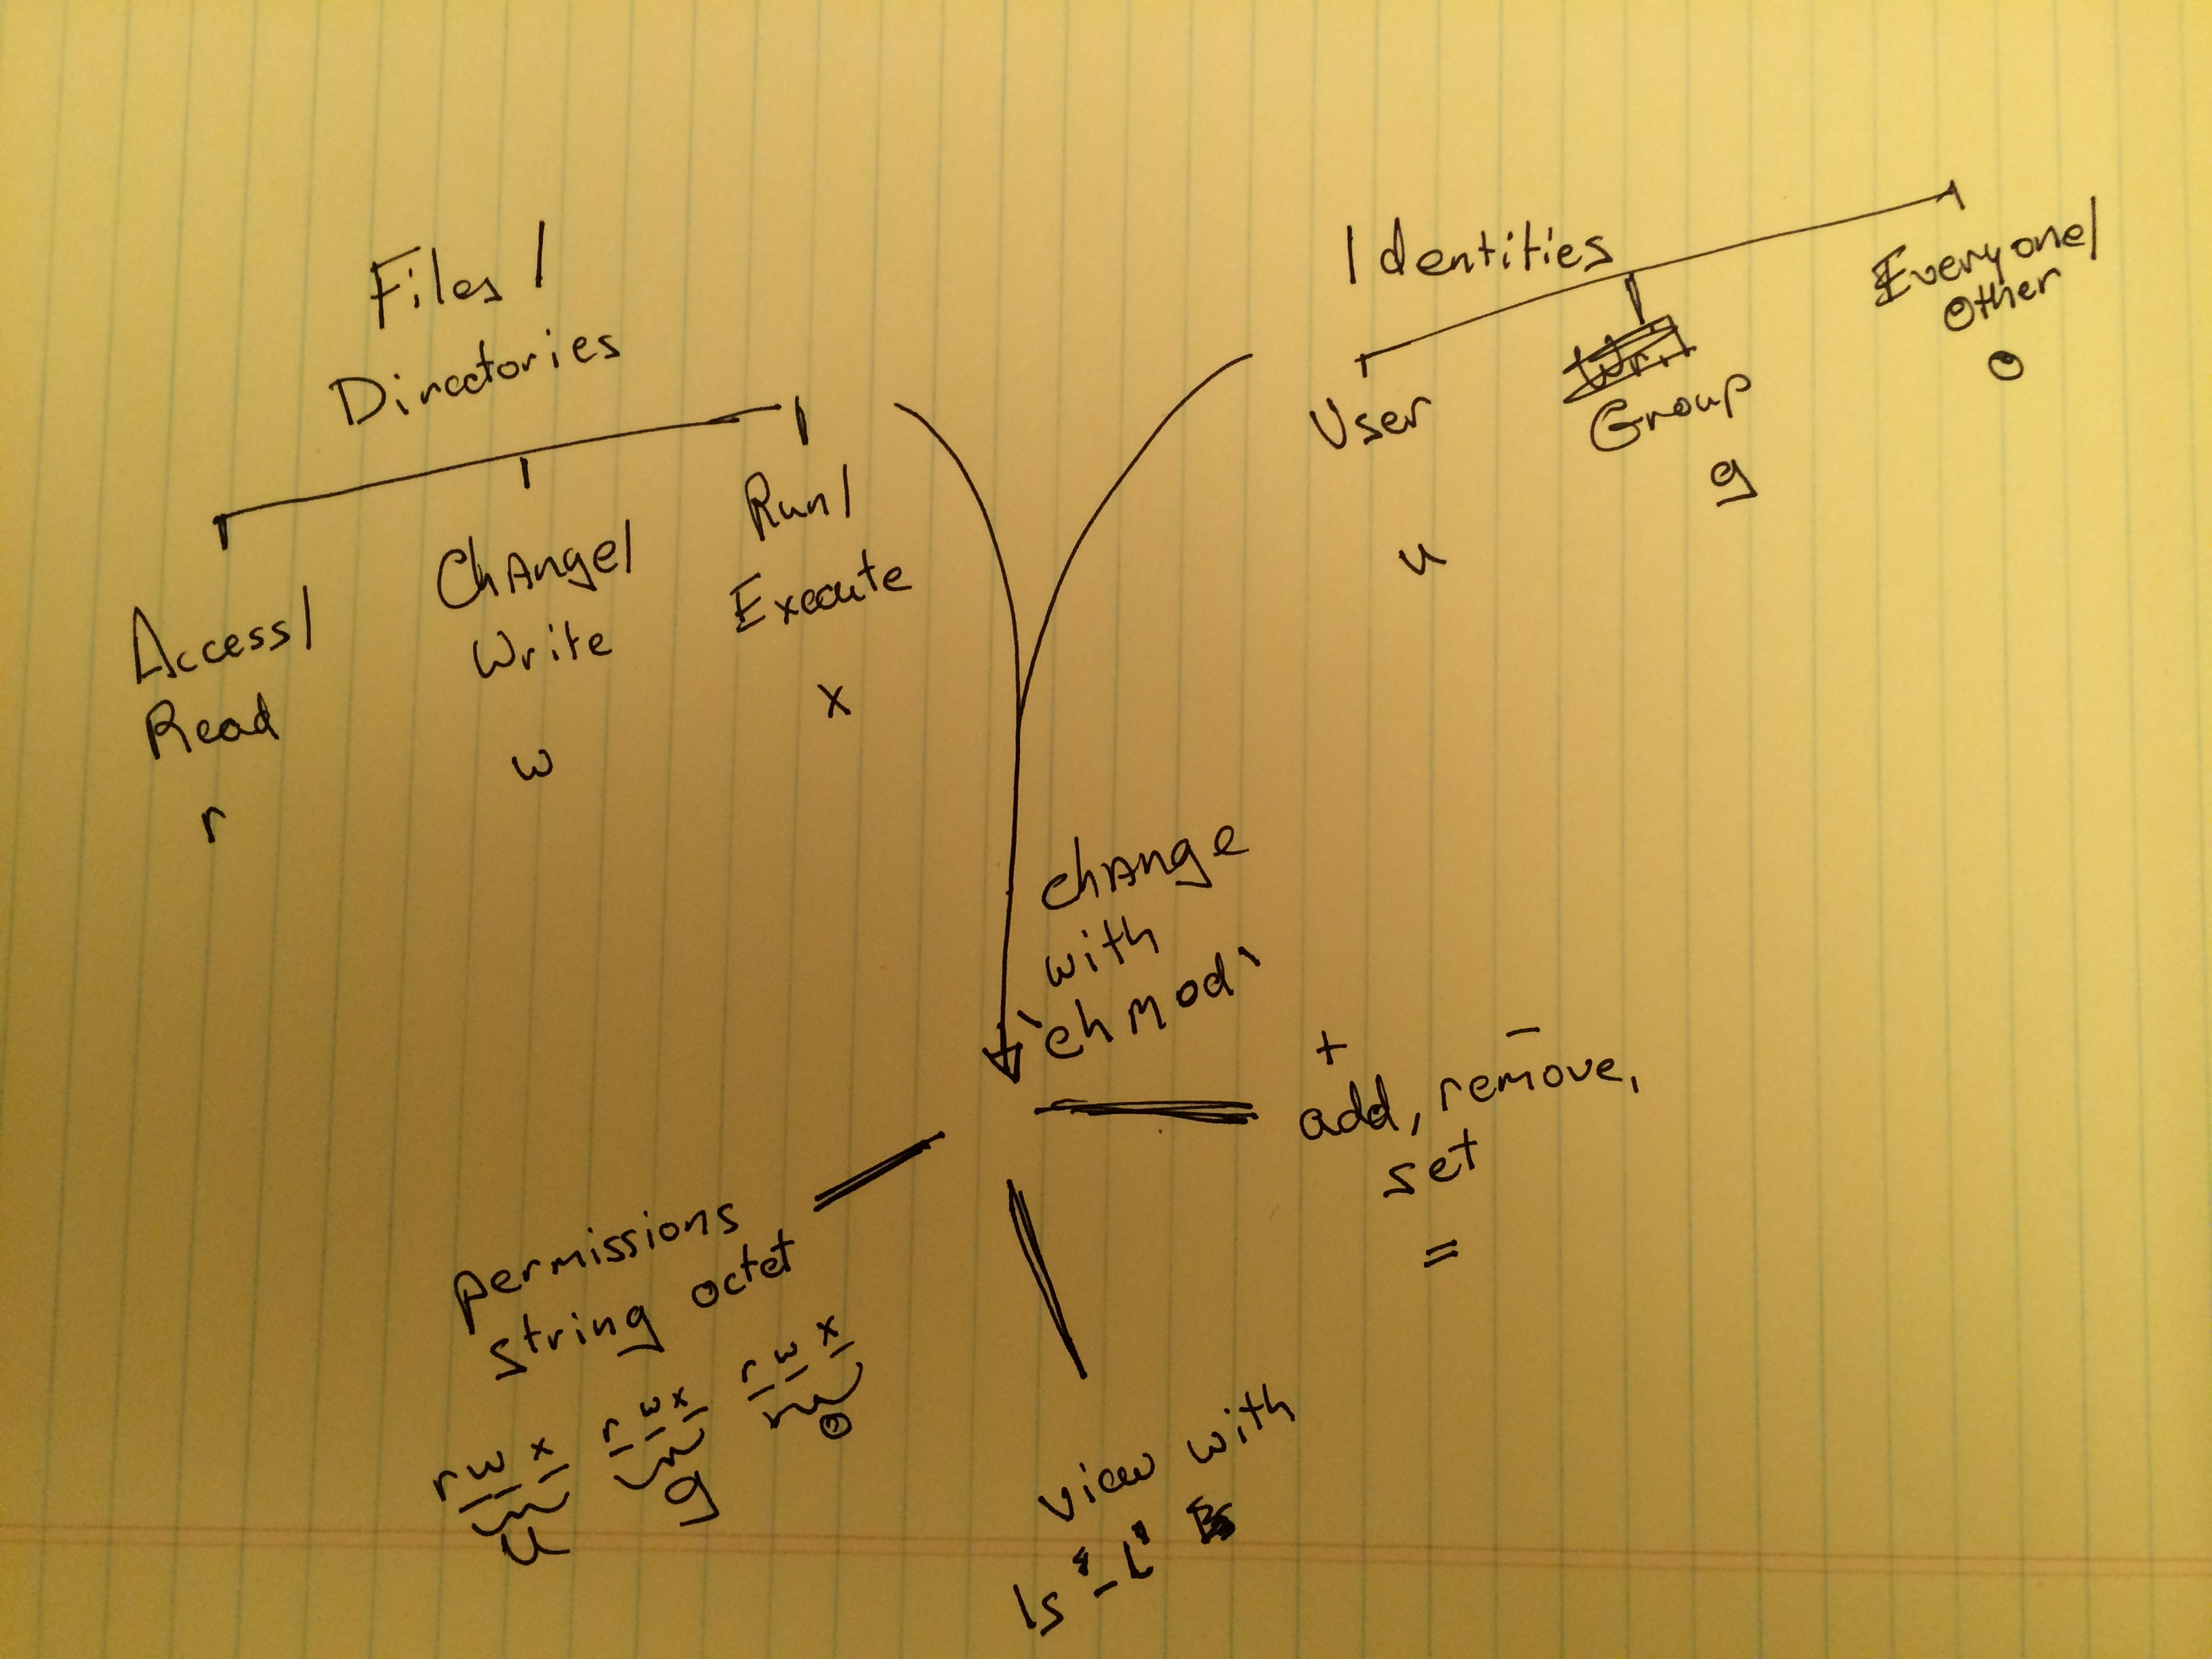 Files /
Directories
Access/
Read
r
Change/
Write
w
Run/
Execute
x
Identities
User
u
Group
g
Everyone/
Other
o
change
with
`chmod`
+ -
add, remove,
set
=
permissions
string octet
r w x r w x r w x
u g o
view with
ls '-l'